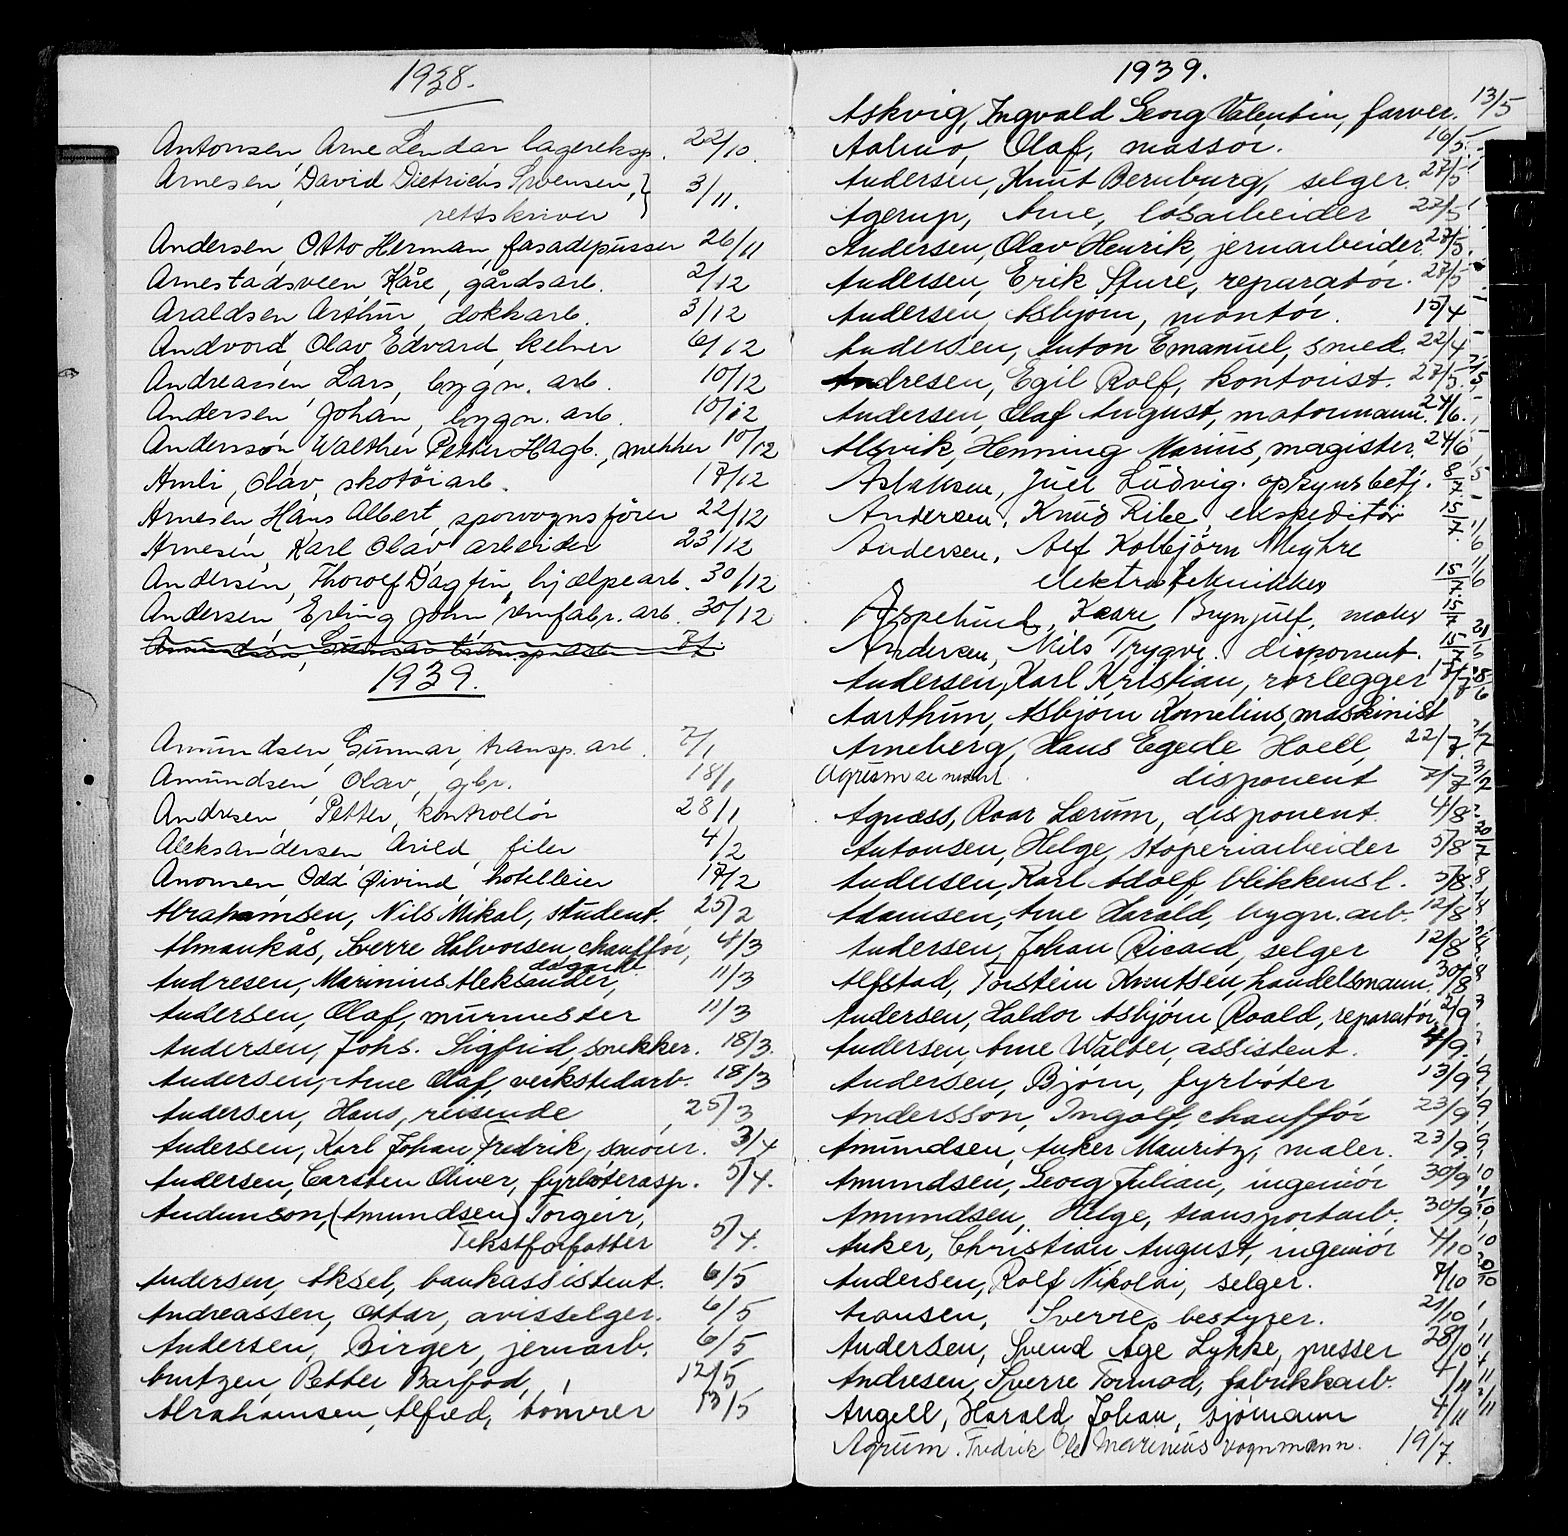 1938.
Antonsen, Arne Lendar lagereksp. 22/10.
Arnesen, David Dietrichs Svensen, } 3/11.
rettskriver
Andersen, Otto Herman, fasadepusser 26/11
Arnestadsveen Kåre, gårdsarb. 2/12
Araldsen Arthur, dokkarb. 3/12
Andvord, Olav Edvard, kelner 6/12
Andreassen, Lars, bygn. arb. 10/12
Andersen, Johan, bygn. arb. 10/12
Andersson, Walther Petter Hagb., snekker 10/12
Amli, Olav, skotøiarb. 17/12
Arnesen, Hans Albert, sporvognsfører 22/12
Arnesen, Karl Olav arbeider 23/12
Andersen, Thorolf Dagfin, hjælpearb. 30/12
Andersen Erling John arb. 30/12
Amundsen, Gunnar transp. arb. 7/1
1939.
Amundsen, Gunnar, transp. arb. 7/1
Amundsen, Olav, gbr. 18/1
Andresen, Petter, kontrollør 28/1
Aleksandersen, Arild, filer 4/2
Aronsen, Odd Øivind, hotelleier 17/2
Abrahamsen, Nils Mikal, student. 25/2
Almankås, Sverre Halvorsen, chauffør, 4/3
Andresen, Marinius Aleksander, 11/3
Andersen, Olaf, murmester 11/3
Andersen, Johs. Sigfrid, snekker. 18/3.
Andersen, Arne Olaf, verkstedarb. 18/3
Andersen, Hans, reisende 25/3
Andersen, Karl Johan Fredrik, smører. 3/4
Andersen, Carsten Oliver, fyrbøterasp. 5/4.
Audunson, (Amundsen) Torgeir,
Tekstforfatter 5/4.
Andersen, Aksel, bankassistent. 6/5
Andreassen, Ottar, avisselger. 6/5
Andersen, Birger, jernarb. 6/5
Arntzen, Petter Barfod, 12/5
Abrahamsen, Alfred, tømrer 13/5
1939.
Askvig, Ingvald Georg Valentin, farver. 13/5
Aalmo, Olaf, massør. 16/5
Andersen, Knut Bernburg, selger. 27/5
Agerup, Arne, løsarbeider 27/5
Andersen, Olav Henrik, jernarbeider. 27/5.
Andersen, Erik Sture, reparatør. 27/5
Andersen, Asbjørn, montør. 15/4
Andersen, Anton Emanuel, smed. 22/4
Andresen, Egil Rolf, kontorist. 27/5.
Andersen, Olaf August, motormann. 24/6.
Alsvik, Henning Marius, magister. 24/6
Aslaksen, Juel Ludvig. opsynsbetj. 8/7.
Andersen, Knud Ribe, ekspeditør 15/7.
Andersen, Alf Kolbjørn Meghre
elektrotekniker 15/7.
Aspelund, Kaare, Brynjulf, maler 15/7
Andersen, Nils Trygve. disponent. 15/7
Andersen, Karl Kristian, rørlegger
Aarthun, Asbjørn Kornelius, maskinist
Arneberg, Hans Egede Hoell, 22/7.
Agrum se nederst disponent
Agnæss, Roar Lærum, disponent. 4/8
Antonsen, Helge, støperiarbeider 5/8
Andersen, Karl Adolf, blikkensl. 5/8.
Adamsen, Arne Harald, bygn. arb. 12/8
Andersen, Johan Ricard, selger 12/8
Alfstad, Torstein Knutsen, handelsmann. 30/8
Andersen, Haldor Asbjørn Roald, reparatør, 2/9
Andersen, Arne Walter, assistent. 4/9.
Andersen, Bjørn, fyrbøter 13/9
Andersson, Ingolf, chauffør 23/9
Amundsen, Anker Mauritz, maler. 23/9.
Amundsen, Georg Julian, ingeniør 30/9
Amundsen, Helge, transportarb. 30/9
Anker, Christian August, ingeniør 4/10
Andersen, Rolf Nikolai, selger. 7/10
Aronsen, Sverre, bestyrer. 21/10
Andersen, Svend Åge Lykke, presser 28/10
Andresen, Sverre Tormod, fabrikkarb. 4/11
Angell, Harald Johan, sjømann 4/11
Agrum. Fredrik Ole Marinius vognmann. 19/7.